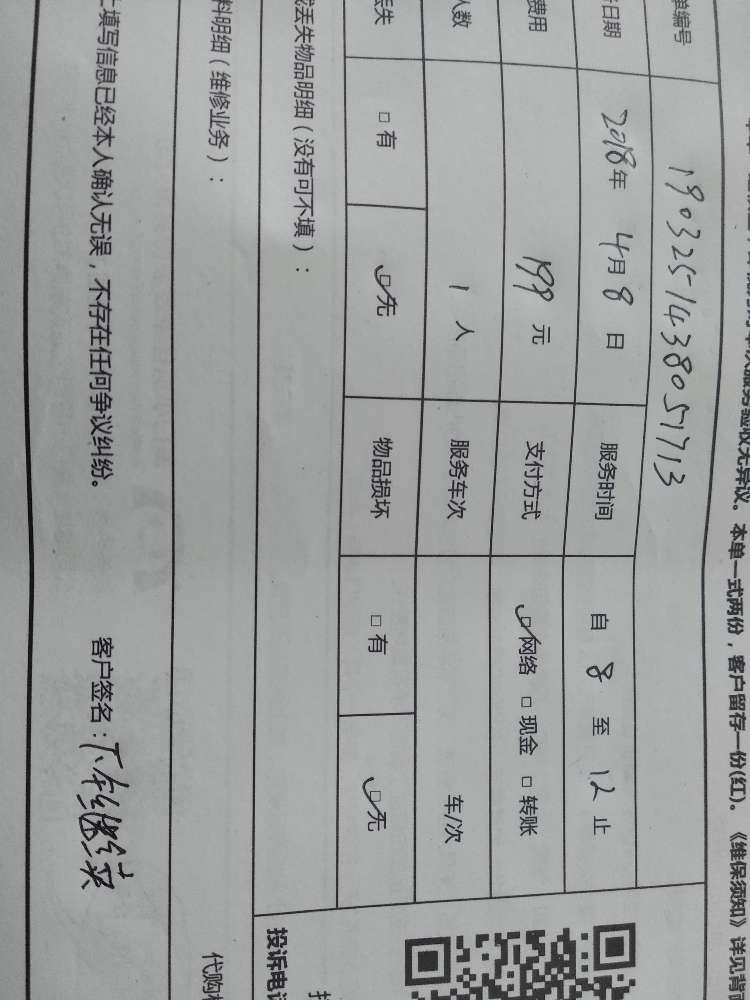 服务验收无异议。本单一式两份，客户留存一份(红)。《维保须知》详见背
单编号 1903251438051713
日期 2018年 4月 8日 服务时间 自 8 至 12 止
费用 199 元 支付方式 ☑网络 □ 现金 □ 转账
人数 1 人 服务车次 车/次
丢失 □ 有 ☑无 物品损坏 □ 有 ☑无
或丢失物品明细（没有可不填）：
料明细（维修业务）：
上填写信息已经本人确认无误，不存在任何争议纠纷。
客户签名：
投诉电话
代购